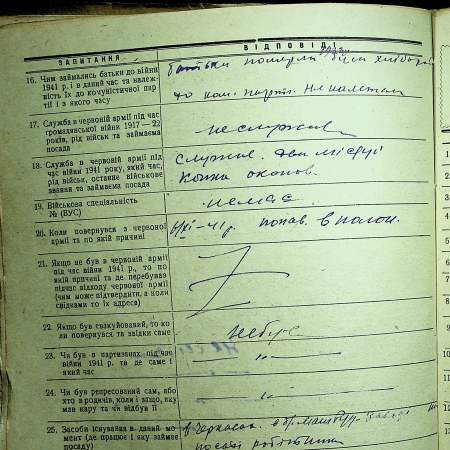 ЗАПИТАННЯ
ВІДПОВІДІ
16. Чим займались батьки до війни
1941 р. і в даний час та належ-
ність їх до комуністичної пар
тії і з якого часу
батьки померли були хлібороб
до ком. парт. не належали
17. Служба в червоній армії під час
громадянської війни 1917—22
років, рід військ та займаєма
посада
не служив
18. Служба в червоній армії під
час війни 1941 року, який час,
рід військ, останнє військове
звання та займаєма посада
Служив. два місяці
Копка окопов.
19. Військова спеціальність
№ (ВУС)
немає
20. Коли повернувся з червоної
армії та по якій причині
1/XI-41 р. попав в полон.
21. Якщо не був в червоній армії
під час війни 1941 р., то по
якій причині та де перебував
підчас відходу червоної армії
(чим може підтвердити, а коли
свідками то їх адреса)
22. Якщо був евакуйований, то ко
ли повернувся та звідки саме
не був
23. Чи був в партизанах під час
війни 1941 р. та де саме і
який час
—"—
24. Чи був репресований сам, або
хто з родичів, коли і защо, яку
мав кару та чи відбув її
—"—
25. Засоби існування в даний мо
мент (де працює і яку займає
посаду)
в Черкасах
посаді робітника